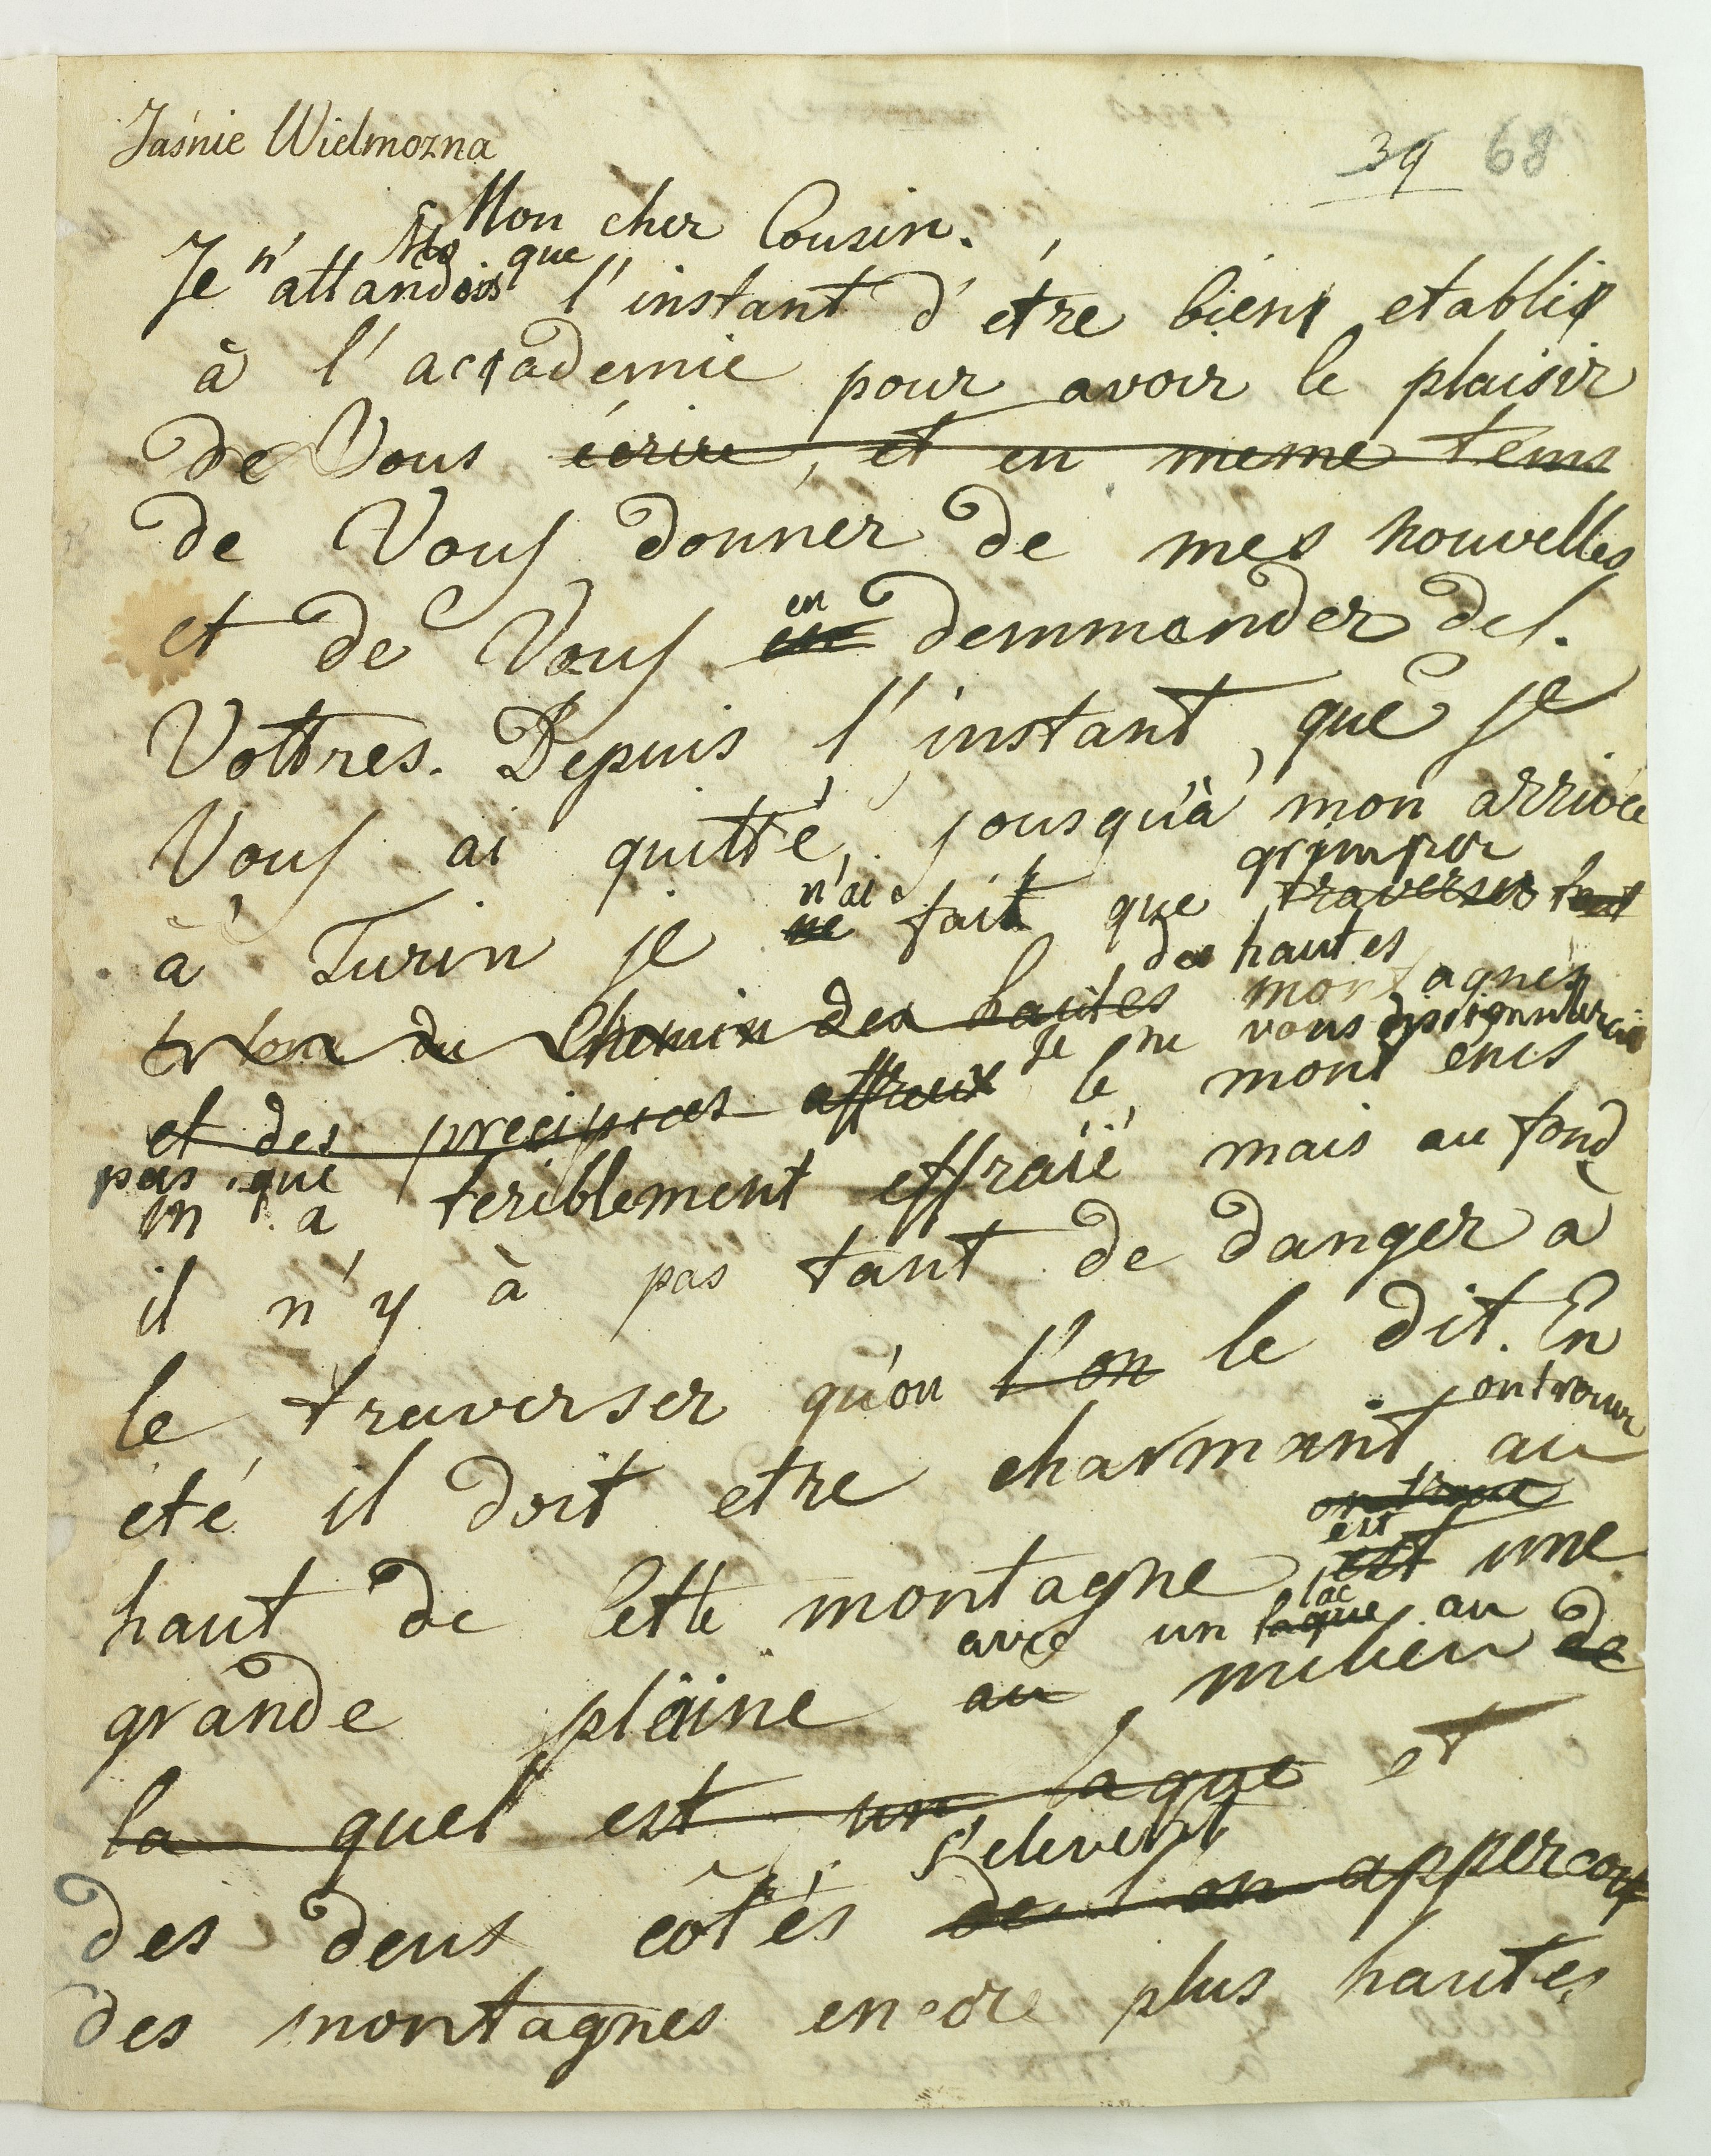 Jaśnie Wielmozna
39 68
Mon cher Cousin.
Je n'attandois que l'instant d'etre bien etabli
à l'accademie pour avoir le plaisir
de Vous écrire, et en meme tems
de Vous donner de mes nouvelles
et de Vous en demmander des
Vottres. Depuis l'instant que je
Vous ai quitté, jousqu'à mon arrivée
grimper
n'ai
à Turin je ne fait que traverser tout
des hautes
du Chemin des hautes montagnes
Je ne vous dissimullerai
et des precipices affreux le mont enis
pas que
m'a teriblement effraïé mais au fond
il n'y à pas tant de danger à
le traverser qu'on l'on le dit. En
été il doit etre charmant au
on trouve
est
haut de Cette montagne est une
avec un lac laque au
grande plaine au milieu de
la quel est un laque et
s'elevent
des deux cotés de l'on appercoit
des montagnes encore plus hautes